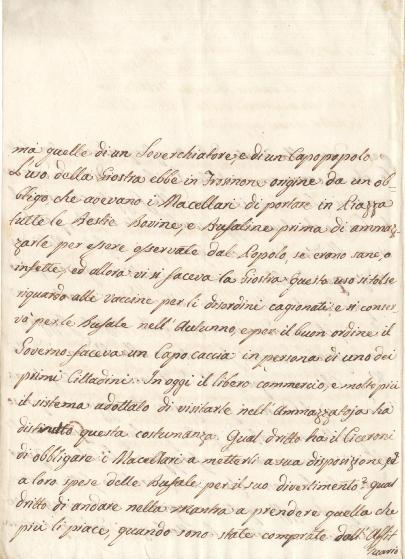 ma quelle di un Soverchiatore, e di un Capopopolo
L'uso della Giostra ebbe in Frosinone origine da un ob=
bligo, che avevano i Macellari di portare in Piazza
tutte le Bestie Bovine, e Bufaline prima di ammaz=
zarle per essere osservate dal Popolo, se erano sane, o
infette, ed allora vi si faceva la Giostra. Questo uso si tolse
riguardo alle vaccine per li disordini cagionati e si conser=
vò per le Bufale nell'Autunno, e per il buon ordine il
Governo faceva un Capo caccia in persona di uno dei
primi Cittadini. In oggi il libero commercio, e molto più
il sistema adottato di visitarle nell'Ammazzatoja ha
distrutto questa costumanza. Qual dritto ha il Ciceroni
di obbligare i Macellari a metterli a sua disposizione, ed
a loro spese delle Bufale per il suo divertimento? Qual
dritto di andare nella mandra a prendere quella che
più li piace, quando sono state comprate dall'Affit
tuario